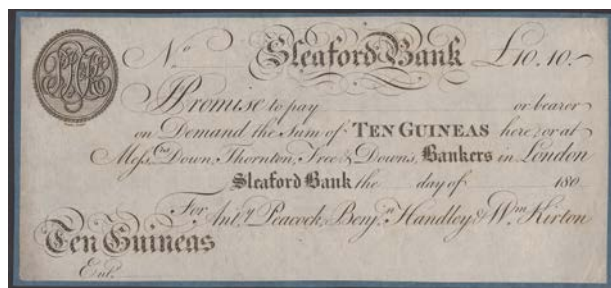 No. Sleaford Bank £10.10.-
I Promise to pay or bearer
on Demand the Sum of TEN GUINEAS here, or at
Messrs. Down, Thornton, Free & Downs, Bankers in London
Sleaford Bank the day of 180
For Ant.y Peacock, Benj.n Handley & Wm. Kirton
Ten Guineas
Ent.d